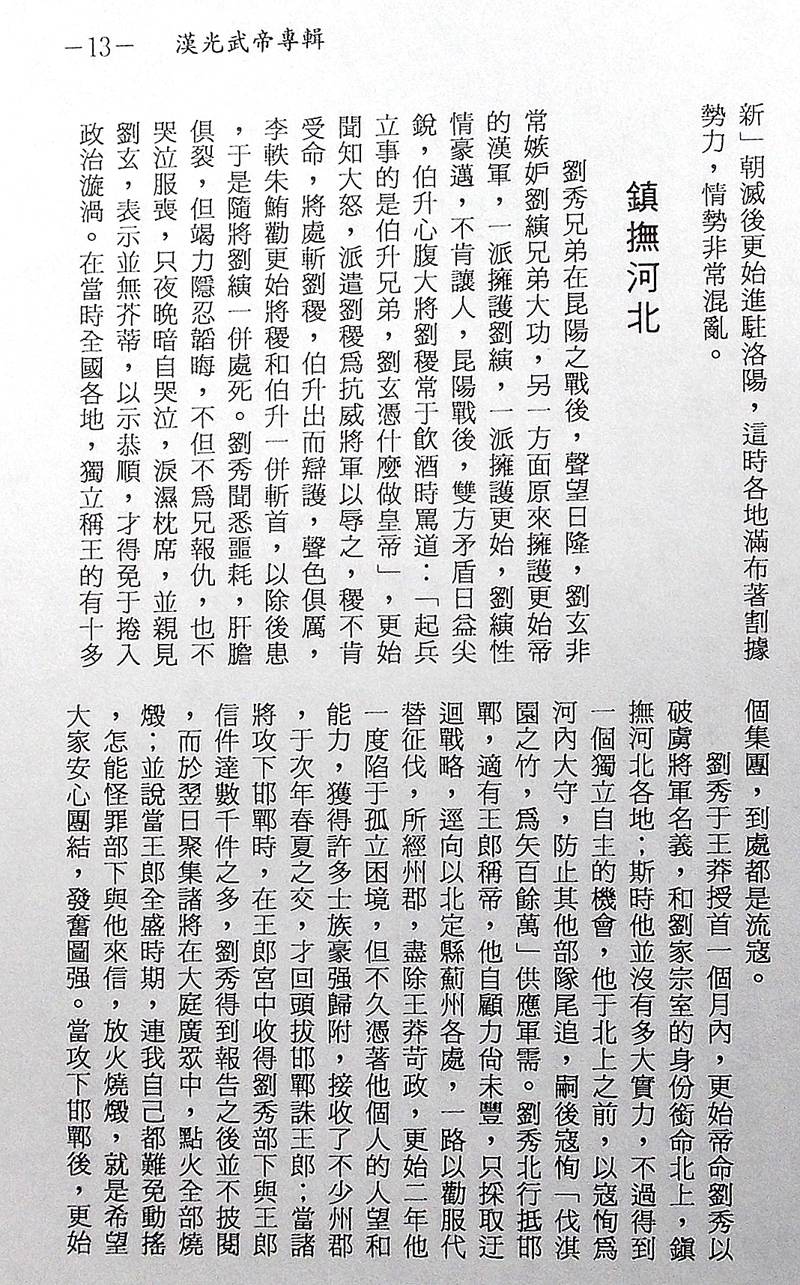 －13－ 漢光武帝專輯
新」朝滅後更始進駐洛陽，這時各地滿布著割據
勢力，情勢非常混亂。
鎮撫河北
劉秀兄弟在昆陽之戰後，聲望日隆，劉玄非
常嫉妒劉縯兄弟大功，另一方面原來擁護更始帝
的漢軍，一派擁護劉縯，一派擁護更始，劉縯性
情豪邁，不肯讓人，昆陽戰後，雙方矛盾日益尖
銳，伯升心腹大將劉稷常于飲酒時罵道：「起兵
立事的是伯升兄弟，劉玄憑什麼做皇帝」，更始
聞知大怒，派遣劉稷爲抗威將軍以辱之，稷不肯
受命，將處斬劉稷，伯升出而辯護，聲色俱厲，
李軼朱鮪勸更始將稷和伯升一併斬首，以除後患
，于是隨將劉縯一併處死。劉秀聞悉噩耗，肝膽
俱裂，但竭力隱忍韜晦，不但不爲兄報仇，也不
哭泣服喪，只夜晚暗自哭泣，淚濕枕席，並親見
劉玄，表示並無芥蒂，以示恭順，才得免于捲入
政治漩渦。在當時全國各地，獨立稱王的有十多
個集團，到處都是流寇。
劉秀于王莽授首一個月內，更始帝命劉秀以
破虜將軍名義，和劉家宗室的身份銜命北上，鎮
撫河北各地；斯時他並沒有多大實力，不過得到
一個獨立自主的機會，他于北上之前，以寇恂爲
河內大守，防止其他部隊尾追，嗣後寇恂「伐淇
園之竹，爲矢百餘萬」供應軍需。劉秀北行抵邯
鄲，適有王郎稱帝，他自顧力尙未豐，只採取迂
迴戰略，逕向以北定縣薊州各處，一路以勸服代
替征伐，所經州郡，盡除王莽苛政，更始二年他
一度陷于孤立困境，但不久憑著他個人的人望和
能力，獲得許多士族豪强歸附，接收了不少州郡
，于次年春夏之交，才回頭拔邯鄲誅王郎；當諸
將攻下邯鄲時，在王郎宮中收得劉秀部下與王郎
信件達數千件之多，劉秀得到報告之後並不披閱
，而於翌日聚集諸將在大庭廣眾中，點火全部燒
燬；並說當王郎全盛時期，連我自己都難免動搖
，怎能怪罪部下與他來信，放火燒燬，就是希望
大家安心團結，發奮圖强。當攻下邯鄲後，更始